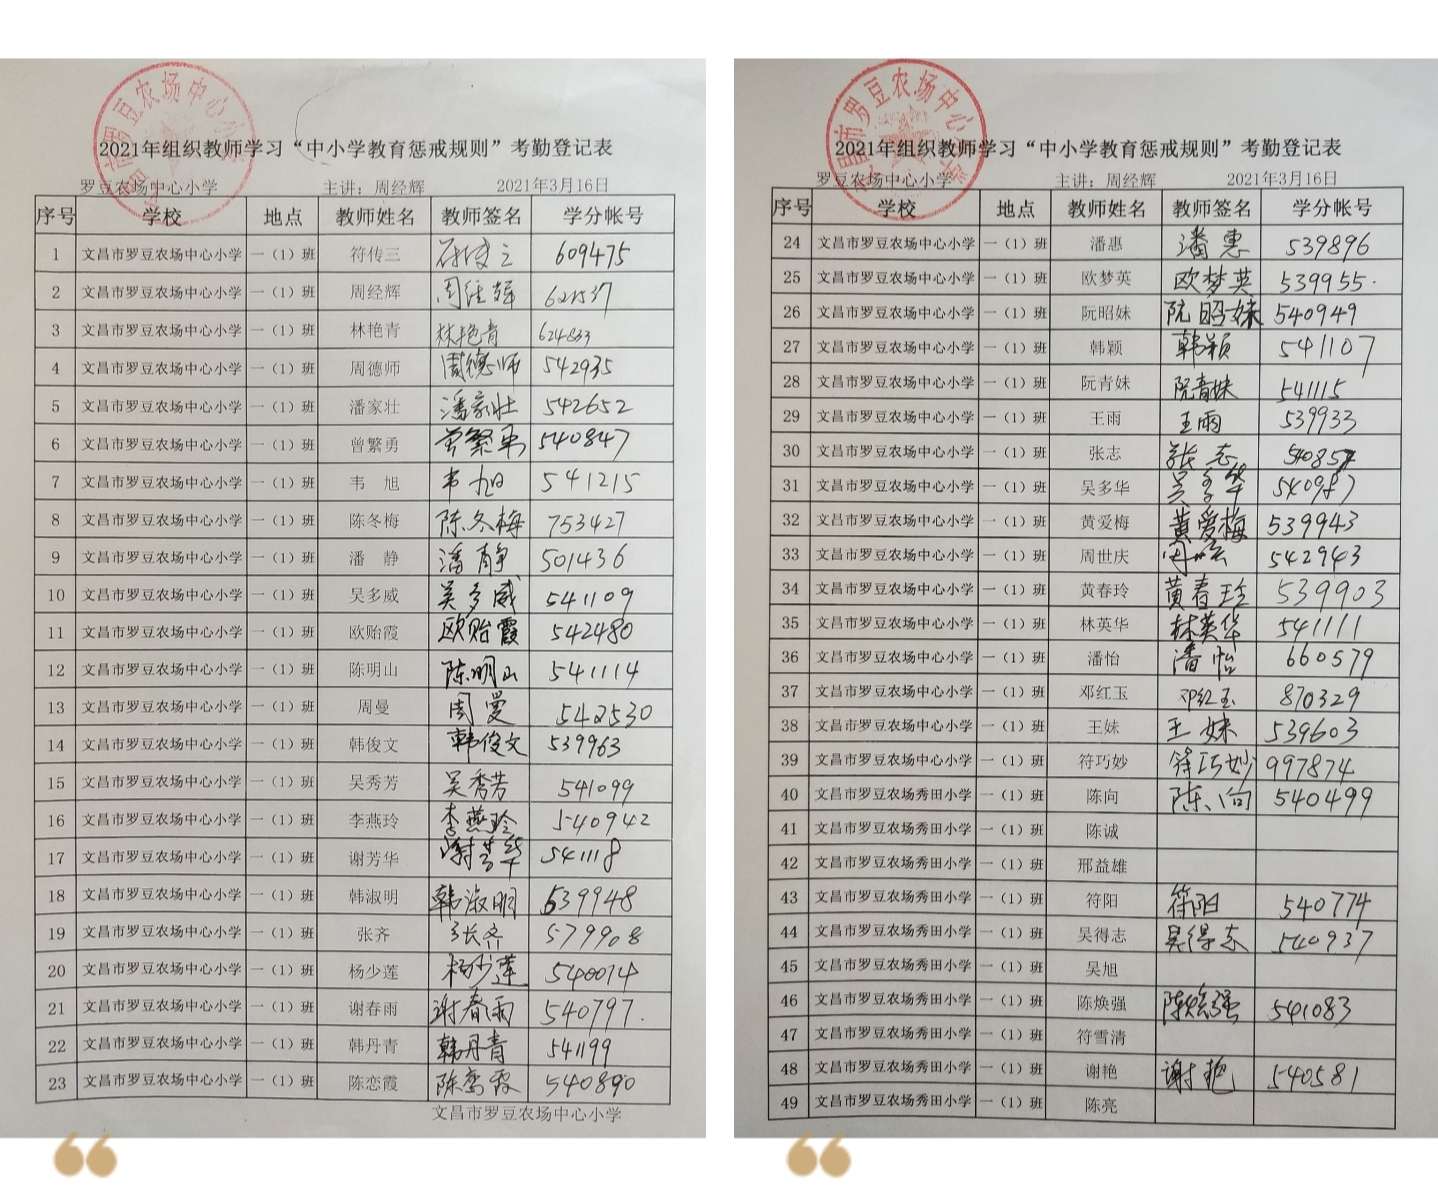 2021年组织教师学习“中小学教育惩戒规则”考勤登记表
罗豆农场中心小学 主讲：周经辉 2021年3月16日
序号 学校 地点 教师姓名 教师签名 学分帐号
1 文昌市罗豆农场中心小学 一（1）班 符传三 符传三 609475
2 文昌市罗豆农场中心小学 一（1）班 周经辉 周经辉 621537
3 文昌市罗豆农场中心小学 一（1）班 林艳青 林艳青 624833
4 文昌市罗豆农场中心小学 一（1）班 周德师 周德师 542935
5 文昌市罗豆农场中心小学 一（1）班 潘家壮 潘家壮 542652
6 文昌市罗豆农场中心小学 一（1）班 曾繁勇 曾繁勇 540847
7 文昌市罗豆农场中心小学 一（1）班 韦 旭 韦旭 541215
8 文昌市罗豆农场中心小学 一（1）班 陈冬梅 陈冬梅 753427
9 文昌市罗豆农场中心小学 一（1）班 潘 静 潘静 501436
10 文昌市罗豆农场中心小学 一（1）班 吴多威 吴多威 541109
11 文昌市罗豆农场中心小学 一（1）班 欧贻霞 欧贻霞 542480
12 文昌市罗豆农场中心小学 一（1）班 陈明山 陈明山 541114
13 文昌市罗豆农场中心小学 一（1）班 周曼 周曼 542530
14 文昌市罗豆农场中心小学 一（1）班 韩俊文 韩俊文 539963
15 文昌市罗豆农场中心小学 一（1）班 吴秀芳 吴秀芳 541099
16 文昌市罗豆农场中心小学 一（1）班 李燕玲 李燕玲 540942
17 文昌市罗豆农场中心小学 一（1）班 谢芳华 谢芳华 541118
18 文昌市罗豆农场中心小学 一（1）班 韩淑明 韩淑明 539948
19 文昌市罗豆农场中心小学 一（1）班 张齐 张齐 579908
20 文昌市罗豆农场中心小学 一（1）班 杨少莲 杨少莲 540014
21 文昌市罗豆农场中心小学 一（1）班 谢春雨 谢春雨 540797.
22 文昌市罗豆农场中心小学 一（1）班 韩丹青 韩丹青 541199
23 文昌市罗豆农场中心小学 一（1）班 陈恋霞 陈恋霞 540890
文昌市罗豆农场中心小学
2021年组织教师学习“中小学教育惩戒规则”考勤登记表
罗豆农场中心小学 主讲：周经辉 2021年3月16日
序号 学校 地点 教师姓名 教师签名 学分帐号
24 文昌市罗豆农场中心小学 一（1）班 潘惠 潘惠 539896
25 文昌市罗豆农场中心小学 一（1）班 欧梦英 欧梦英 539955.
26 文昌市罗豆农场中心小学 一（1）班 阮昭妹 阮昭妹 540949
27 文昌市罗豆农场中心小学 一（1）班 韩颖 韩颖 541107
28 文昌市罗豆农场中心小学 一（1）班 阮青妹 阮青妹 541115
29 文昌市罗豆农场中心小学 一（1）班 王雨 王雨 539933
30 文昌市罗豆农场中心小学 一（1）班 张志 张志 540857
31 文昌市罗豆农场中心小学 一（1）班 吴多华 吴多华 540987
32 文昌市罗豆农场中心小学 一（1）班 黄爱梅 黄爱梅 539943
33 文昌市罗豆农场中心小学 一（1）班 周世庆 542943
34 文昌市罗豆农场中心小学 一（1）班 黄春玲 黄春玲 539903
35 文昌市罗豆农场中心小学 一（1）班 林英华 林英华 541111
36 文昌市罗豆农场中心小学 一（1）班 潘怡 潘怡 660579
37 文昌市罗豆农场中心小学 一（1）班 邓红玉 邓红玉 870329
38 文昌市罗豆农场中心小学 一（1）班 王妹 王妹 539603
39 文昌市罗豆农场中心小学 一（1）班 符巧妙 符巧妙 997874
40 文昌市罗豆农场秀田小学 一（1）班 陈向 陈向 540499
41 文昌市罗豆农场秀田小学 一（1）班 陈诚
42 文昌市罗豆农场秀田小学 一（1）班 邢益雄
43 文昌市罗豆农场秀田小学 一（1）班 符阳 符阳 540774
44 文昌市罗豆农场秀田小学 一（1）班 吴得志 吴得志 540937
45 文昌市罗豆农场秀田小学 一（1）班 吴旭
46 文昌市罗豆农场秀田小学 一（1）班 陈焕强 陈焕强 541083
47 文昌市罗豆农场秀田小学 一（1）班 符雪清
48 文昌市罗豆农场秀田小学 一（1）班 谢艳 谢艳 540581
49 文昌市罗豆农场秀田小学 一（1）班 陈亮